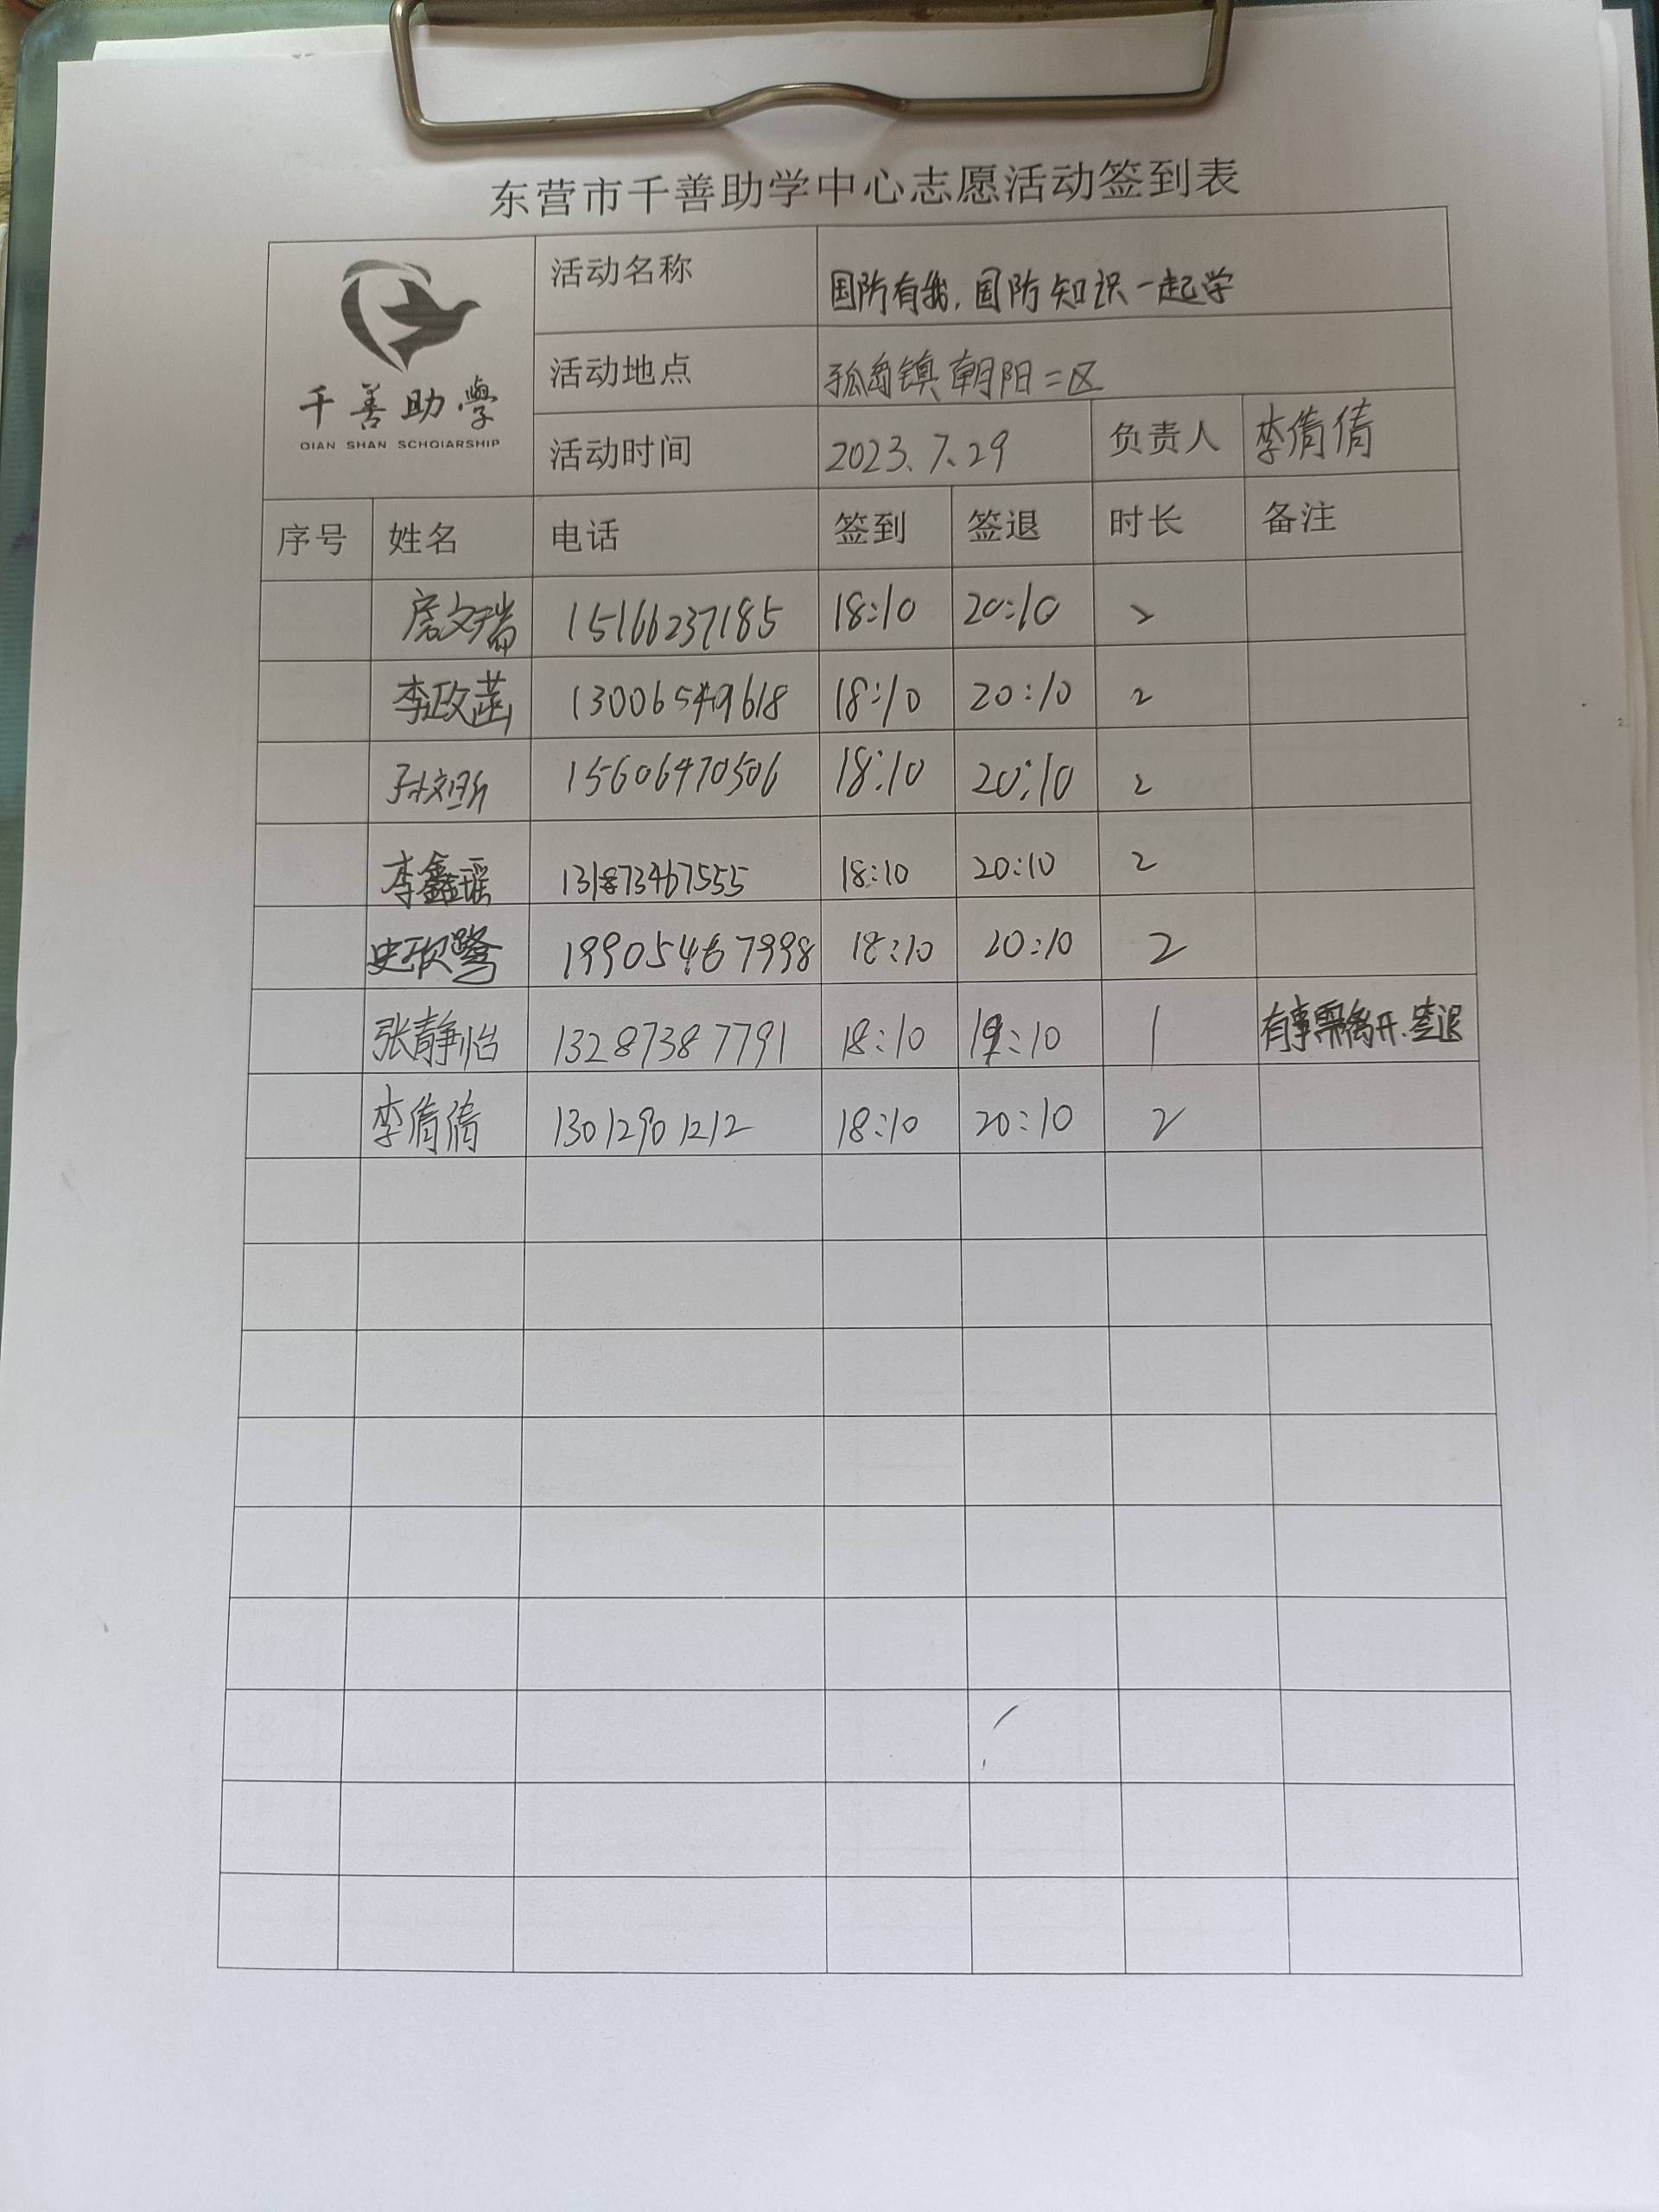 东营市千善助学中心志愿活动签到表
千善助學
QIAN SHAN SCHOIARSHIP
活动名称 国防有我,国防知识一起学
活动地点 孤岛镇朝阳二区
活动时间 2023.7.29 负责人 李倩倩
序号 姓名 电话 签到 签退 时长 备注
房文瑞 15166237185 18:10 20:10 2
李政菡 13006549618 18:10 20:10 2
15606470506 18:10 20:10 2
李鑫瑶 18:10 20:10 2
史欣鹭 19905467998 18:10 20:10 2
张静怡 13287387791 18:10 19:10 1 有事需离开.签退
李倩倩 13012901212 18:10 20:10 2